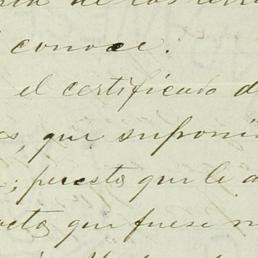 de los
conoce.
el certificado d
que suponi
; puesto que le a
que fuese n